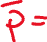 p̅ =